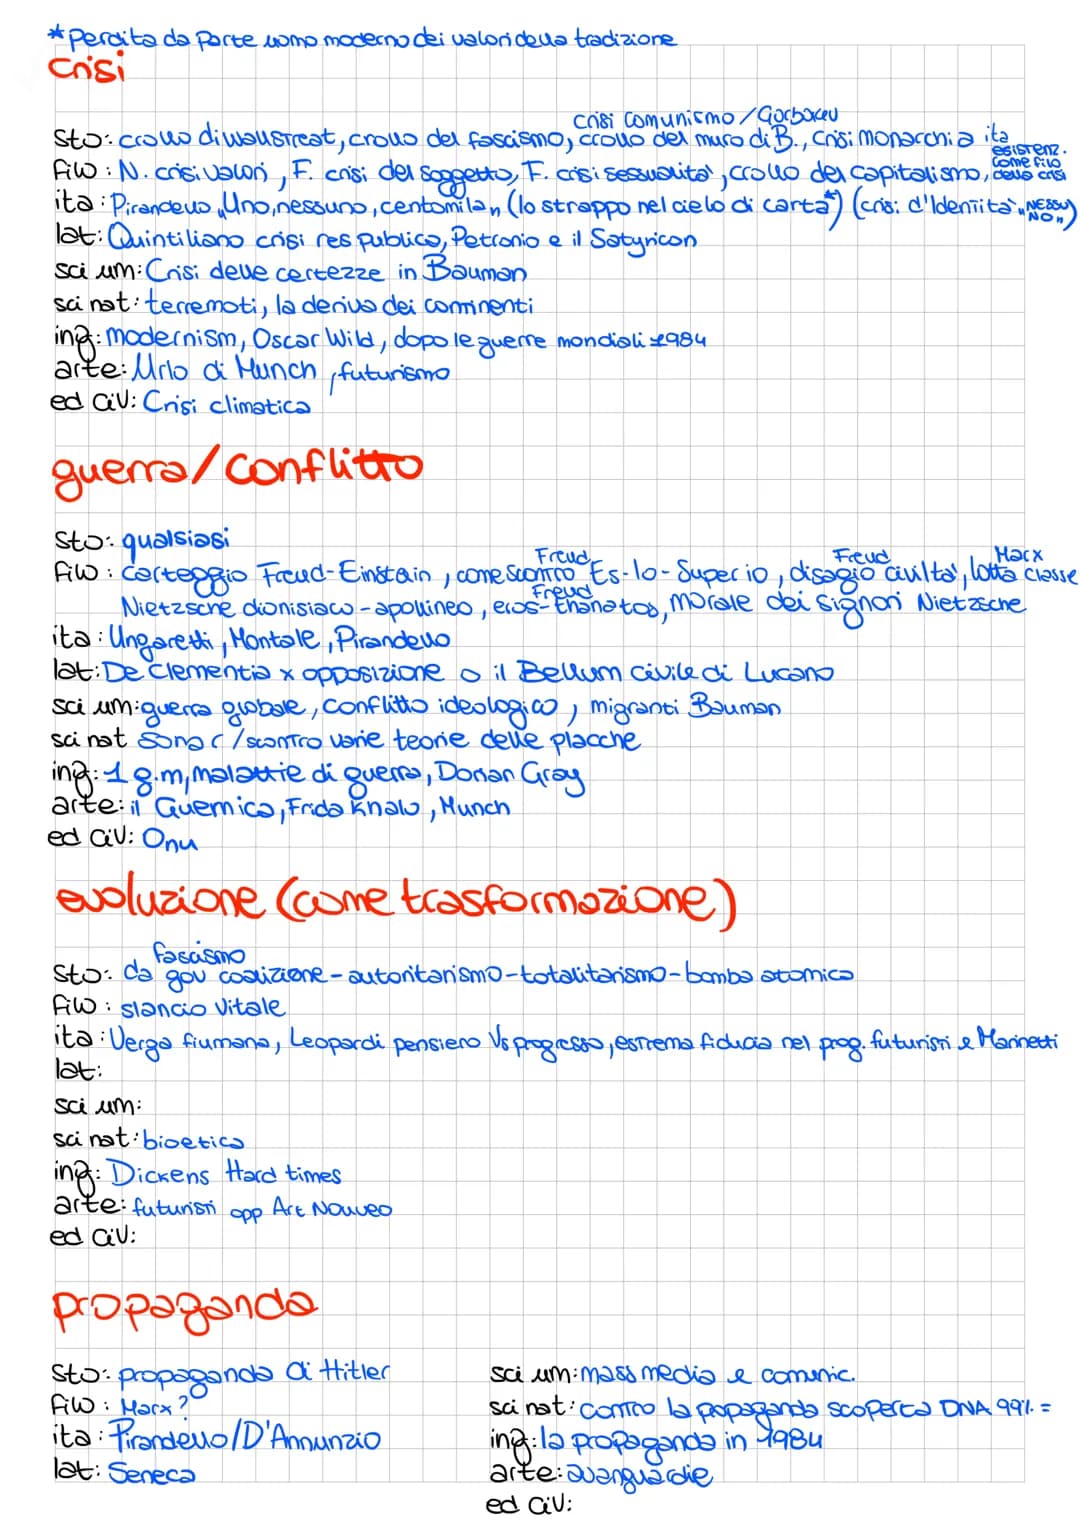 *Perdita da parte uomo moderno dei valori della tradizione
crisi
crisi comunismo/Gorbacev
sto: crollo di wallstreat, crollo del fascismo, crollo del muro di B., crisi monarchia ita
filo: N. crisi valori, F. crisi del soggetto, F. crisi sessualita', crollo del capitalismo, esistenz. come filo della crisi
ita: Pirandello „Uno, nessuno, centomila„ (lo strappo nel cielo di carta*) (crisi d'Identità „NESSUNO„)
lat: Quintiliano crisi res publica, Petronio e il Satyricon
sci um: Crisi delle certezze in Bauman
sci nat: terremoti, la deriva dei continenti
ing: modernism, Oscar Wild, dopo le guerre mondiali 1984
arte: Urlo di Munch, futurismo
ed civ: Crisi climatica
guerra/conflitto
sto: qualsiasi
Freud Freud Marx
filo: carteggio Freud-Einstain, come scontro Es-Io-Super io, disagio civilta', lotta classe
Freud
Nietzsche dionisiaco-apollineo, eros-thanatos, morale dei signori Nietzsche
ita: Ungaretti, Montale, Pirandello
lat: De Clementia x opposizione o il Bellum civile di Lucano
sci um: guerra globale, conflitto ideologico, migranti Bauman
sci nat sonar/scontro varie teorie delle placche
ing: 1 g.m, malattie di guerra, Dorian Gray
arte: il Guernica, Frida Khalo, Munch
ed civ: Onu
evoluzione (come trasformazione)
fascismo
sto: da gov coalizione-autoritarismo-totalitarismo-bomba atomica
filo: slancio vitale
ita: Verga fiumana, Leopardi pensiero Vs progresso, estrema fiducia nel prog. futuristi e Marinetti
lat:
sci um:
sci nat: bioetica
ing: Dickens Hard times
arte: futuristi opp Art Nouveo
ed civ:
propaganda
sto: propaganda di Hitler
filo: Marx?
ita: Pirandello/D'Annunzio
lat: Seneca
sci um: mass media e comunic.
sci nat: contro la propaganda scoperta DNA 99% =
ing: la propaganda in 1984
arte: avanguardie
ed civ: